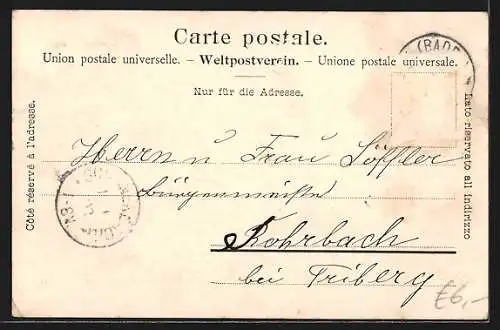 Carte postale.
Union postale universelle. – Weltpostverein. – Unione postale universale.
Nur für die Adresse.
(BADE
Côté réservé à l'adresse.
Lato riservato all indirizzo
Herrn u Frau Löffler
Bürgermeister
Rohrbach
bei Triberg
€6,-